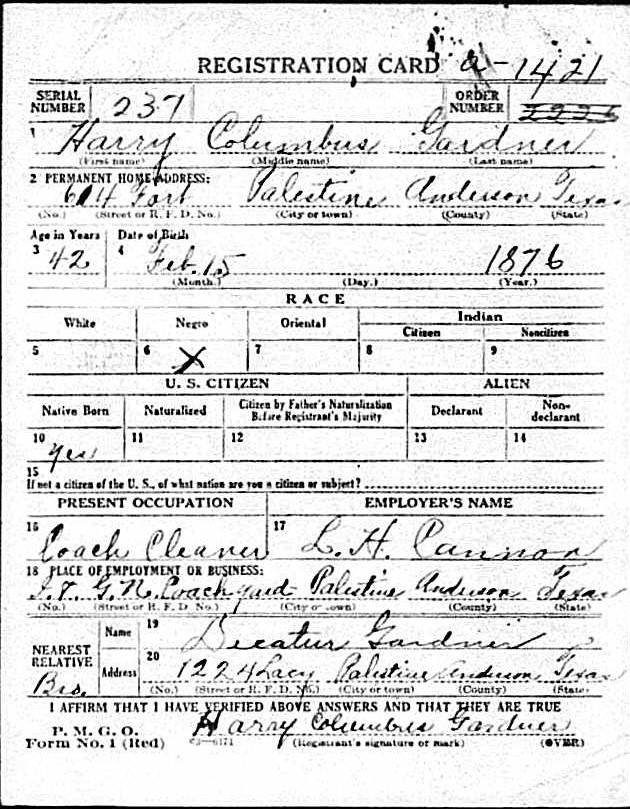 REGISTRATION CARD a-1421
SERIAL NUMBER 237 ORDER NUMBER 2226
1 Harry Columbus Gardner
(First name) (Middle name) (Last name)
2 PERMANENT HOME ADDRESS:
614 Fort Palestine Anderson Texas
(No.) (Street or R. F. D. No.) (City or town) (County) (State)
Age in Years Date of Birth
3 42 4 Feb. 15 1876
(Month.) (Day.) (Year.)
RACE
White Negro Oriental Indian
Citizen Noncitizen
5 6 X 7 8 9
U. S. CITIZEN ALIEN
Native Born Naturalized Citizen by Father's Naturalization Before Registrant's Majority Declarant Non-declarant
10 Yes 11 12 13 14
15
If not a citizen of the U. S., of what nation are you a citizen or subject?
PRESENT OCCUPATION EMPLOYER'S NAME
16 Coach Cleaner 17 L. H. Cannon
18 PLACE OF EMPLOYMENT OR BUSINESS:
I. & G. N. Coach yard Palestine Anderson Texas
(No.) (Street or R. F. D. No.) (City or town) (County) (State)
NEAREST RELATIVE Bro.
Name 19 Decatur Gardner
Address 20 1224 Lacy Palestine Anderson Texas
(No.) (Street or R. F. D. No.) (City or town) (County) (State)
I AFFIRM THAT I HAVE VERIFIED ABOVE ANSWERS AND THAT THEY ARE TRUE
P. M. G. O. Harry Columbus Gardner
Form No. 1 (Red) (Registrant's signature or mark) (OVER)